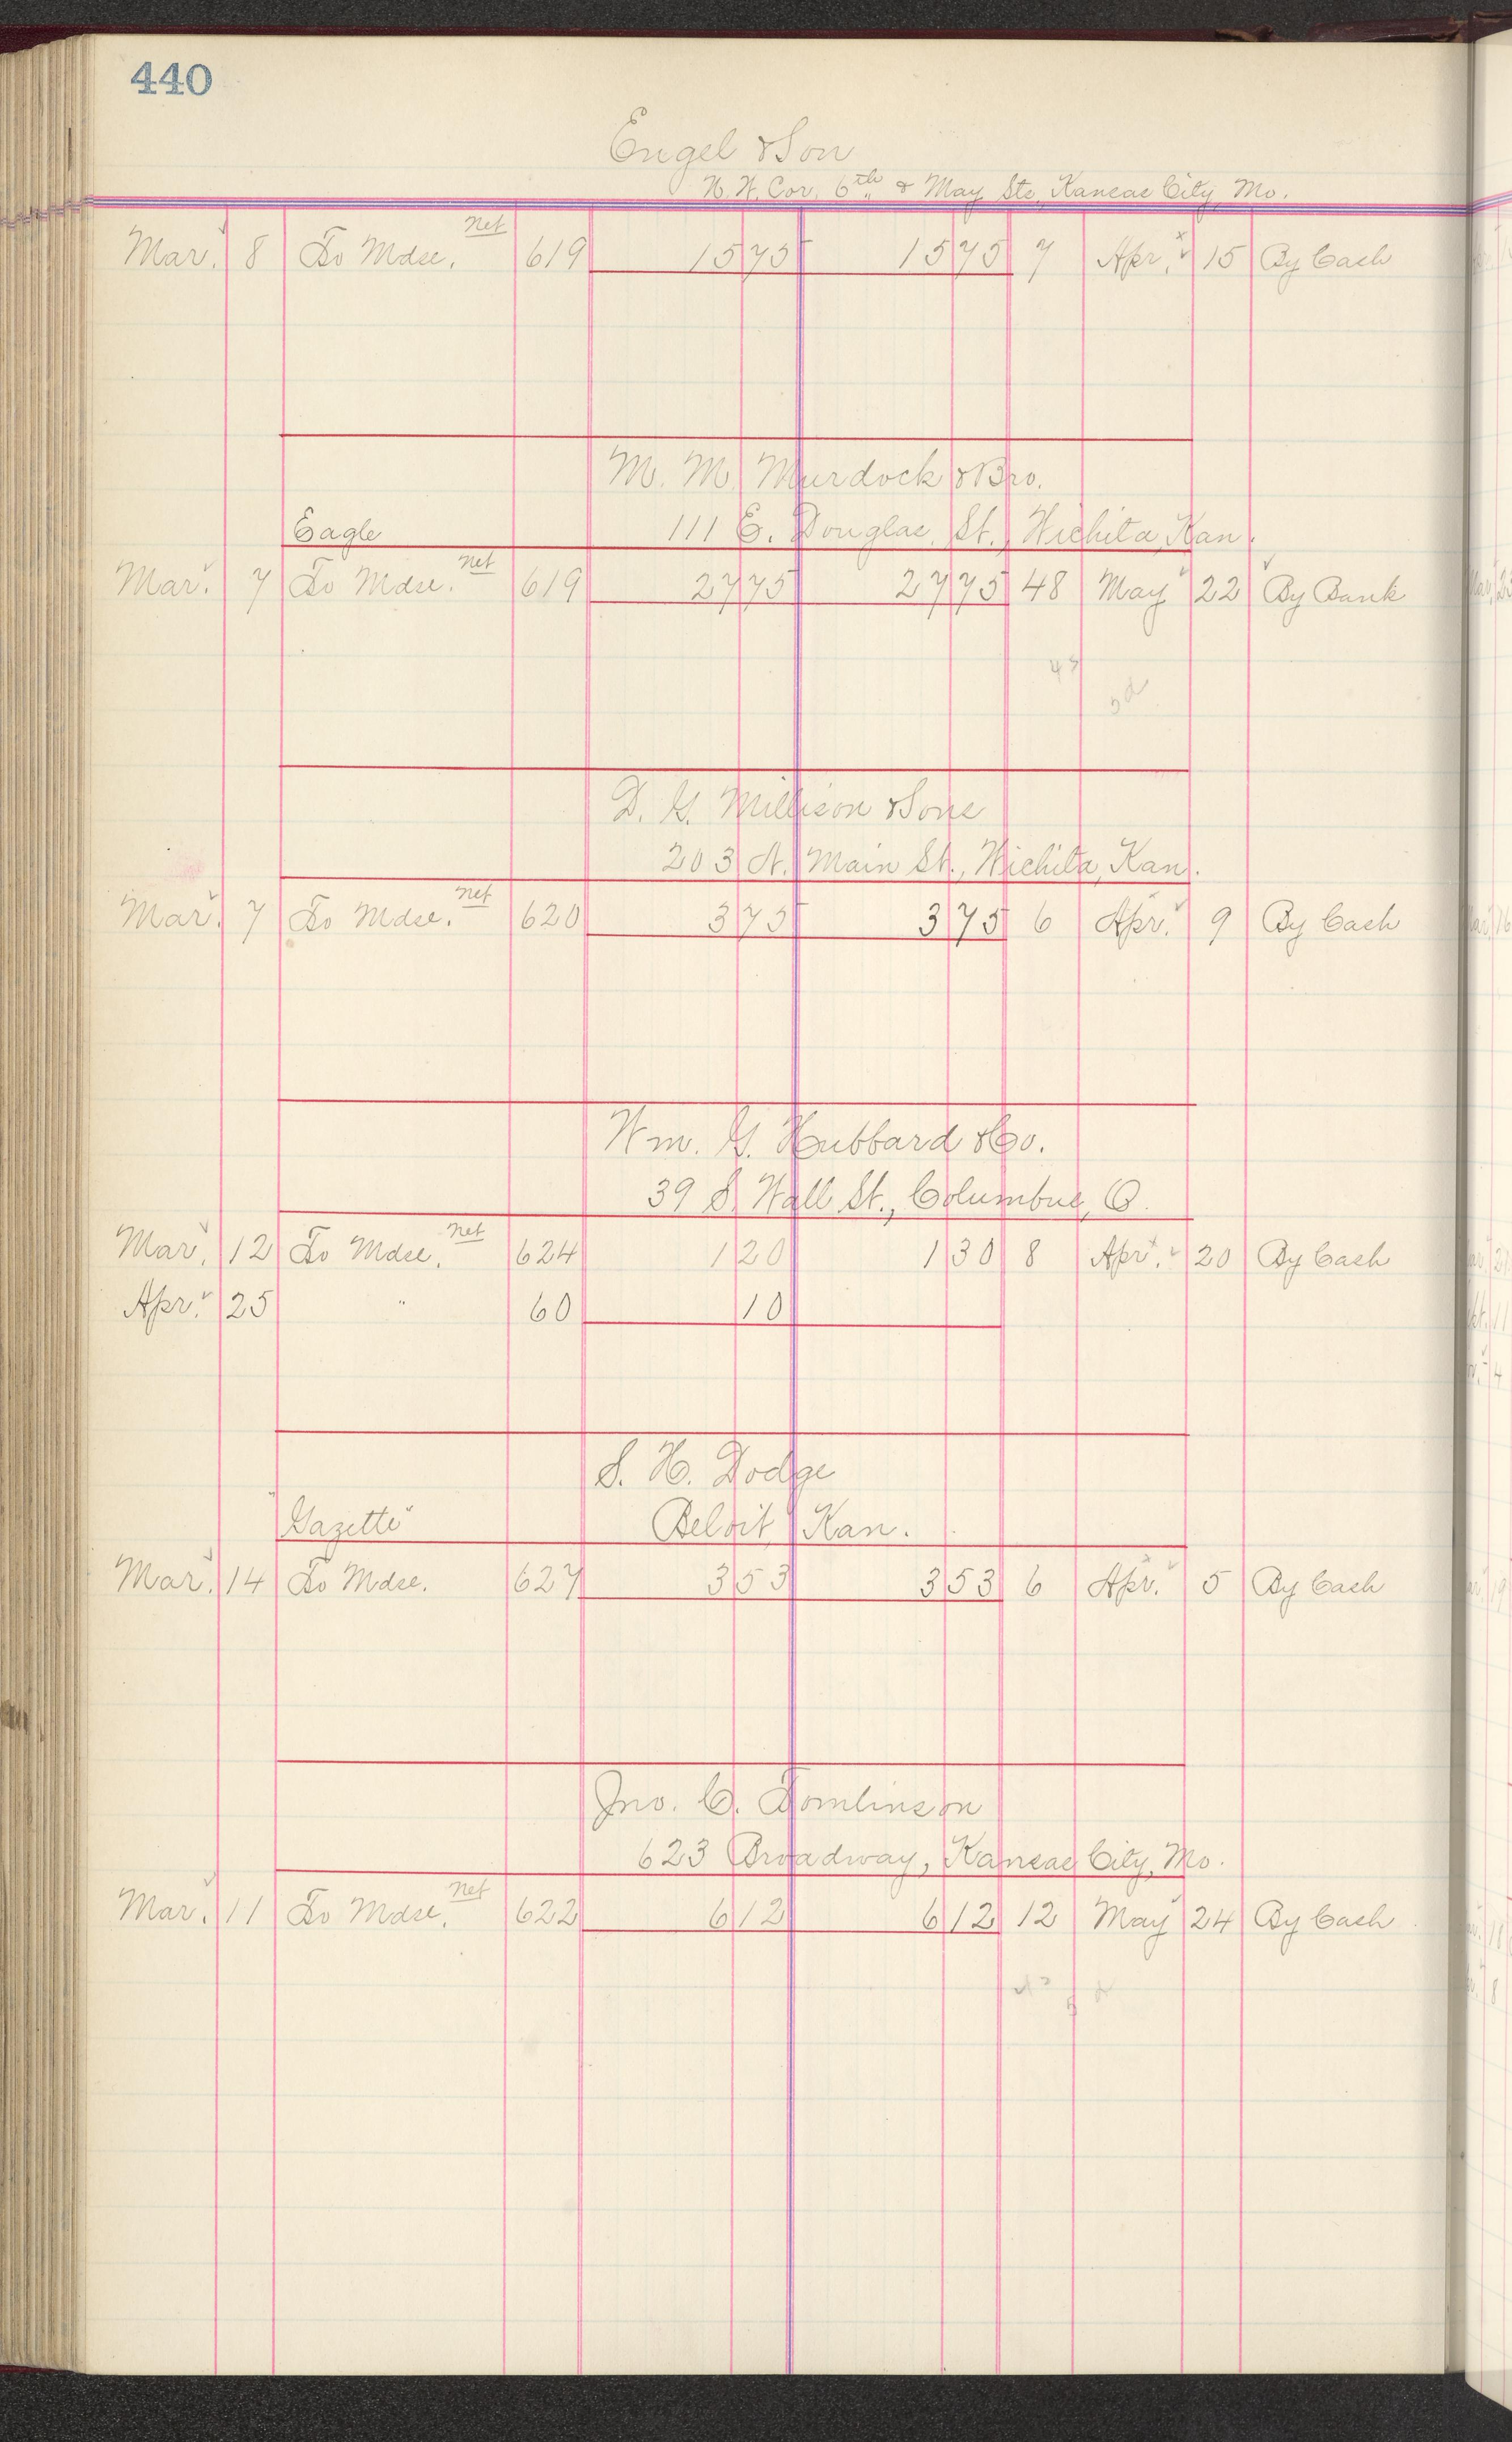 440
Engel & Son
N. W. Cor. 6th & May Sts., Kansas City, Mo.
Mar. 8 To Mdse. Net 619 15 75 15 75 7 Apr. 15 By Cash
M. M. Murdock & Bro.
Eagle 111 E. Douglas, St., Wichita, Kan.
Mar. 7 To Mdse. Net 619 27 75 27 75 48 May 22 By Bank
D. G. Millison & Sons
203 N. Main St., Wichita, Kan.
Mar. 7 To Mdse. Net 620 3 75 3 75 6 Apr. 9 By Cash
Wm. G. Hubbard & Co.
39 S. Wall St., Columbus, O.
Mar. 12 To Mdse. Net 624 1 20 1 30 8 Apr. 20 By Cash
Apr. 25 " 60 10
S. H. Dodge
"Gazette" Beloit, Kan.
Mar. 14 To Mdse. 627 3 53 3 53 6 Apr. 5 By Cash
Jno. C. Tomlinson
623 Broadway, Kansas City, Mo.
Mar. 11 To Mdse. Net 622 6 12 6 12 12 May 24 By Cash